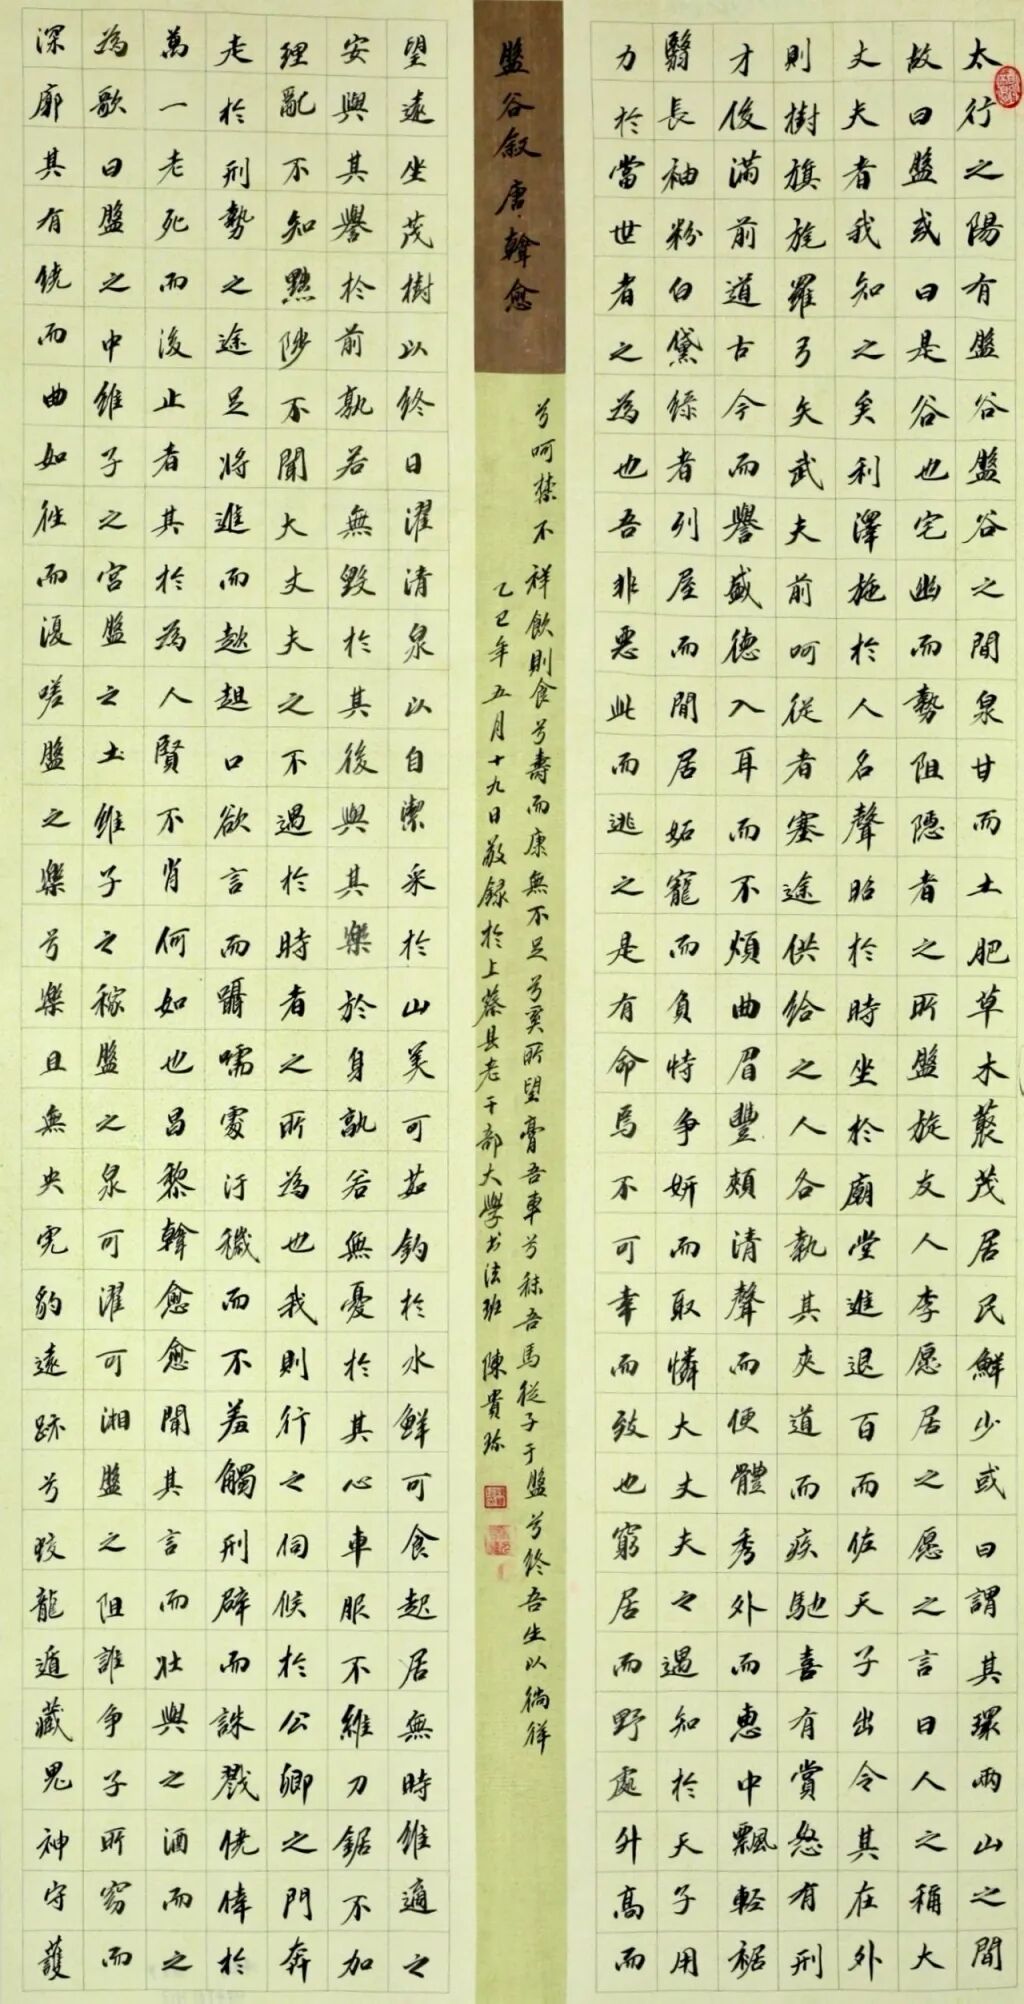 盤谷叙唐·韓愈
太行之陽有盤谷盤谷之間泉甘而土肥草木蘩茂居民鮮少或曰謂其環兩山之間
故曰盤或曰是谷也宅幽而勢阻隱者之所盤旋友人李愿居之愿之言曰人之稱大
丈夫者我知之矣利澤施於人名聲昭於時坐於廟堂進退百而佐天子出令其在外
則樹旗旄羅弓矢武夫前呵從者塞途供給之人各執其夾道而疾馳喜有賞怒有刑
才俊滿前道古今而譽盛德入耳而不煩曲眉豐頰清聲而便體秀外而惠中飄輕裾
翳長袖粉白黛綠者列屋而閒居妬寵而負恃爭妍而取憐大丈夫之遇知於天子用
力於當世者之為也吾非惡此而逃之是有命焉不可幸而致也窮居而野處升高而
望遠坐茂樹以終日濯清泉以自潔采於山美可茹釣於水鮮可食起居無時維適之
安與其譽於前孰若無毀於其後與其樂於身孰若無憂於其心車服不維刀鋸不加
理亂不知黜陟不聞大丈夫之不遇於時者之所為也我則行之伺候於公卿之門奔
走於刑勢之途足將進而趑趄口欲言而囁嚅處汙穢而不羞觸刑辟而誅戮僥倖於
萬一老死而後止者其於為人賢不肖何如也昌黎韓愈愈聞其言而壯與之酒而之
為歌曰盤之中維子之宮盤之土維子之稼盤之泉可濯可湘盤之阻誰爭子所窈而
深廓其有僥而曲如往而復嗟盤之樂兮樂且無央虎豹遠跡兮蛟龍遁藏鬼神守護
兮呵禁不祥飲則食兮壽而康無不足兮奚所望膏吾車兮秣吾馬從子于盤兮終吾生以徜徉
乙巳年五月十九日敬錄於上蔡縣老干部大學书法班 陳貴珍